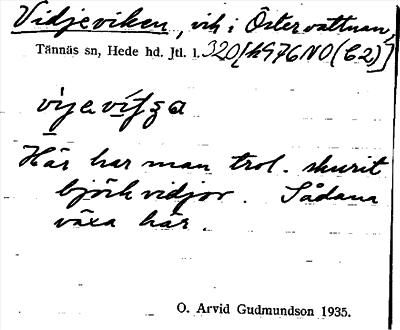 Vidjeviken, vik i Östervattnan,
Tännäs sn, Hede hd. Jtl. l. 320[h976NO(C2)]
Här har man trol. skurit
björkvidjor. Sådana
växa här.
O. Arvid Gudmundson 1935.